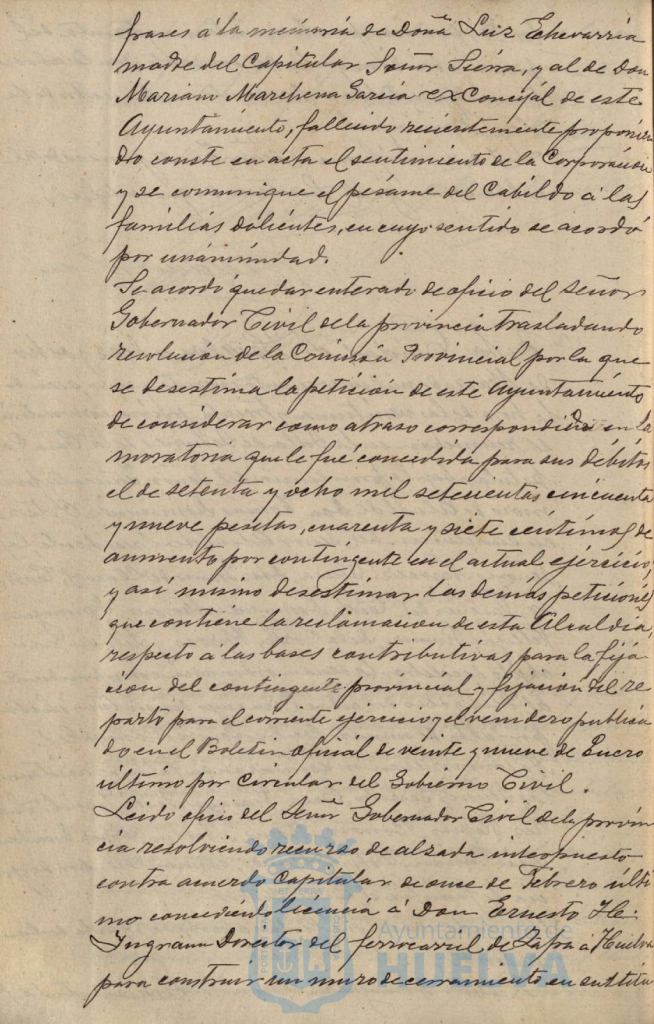 frases á la memoria de Doña Luz Echevarria
madre del Capitular Señor Sierra, y al de Don
Mariano Marchena Garcia ex Concejal de este
Ayuntamiento, fallecido recientemente proponien
do conste en acta el sentimiento de la Corporación
y se comunique el pésame del Cabildo á las
familias dolientes, en cuyo sentido se acordó
por unanimidad.
Se acordó quedar enterado de oficio del Señor
Gobernador Civil de la provincia trasladando
resolución de la Comisión Provincial por la que
se desestima la petición de este Ayuntamiento
de considerar como atraso correspondido en la
moratoria que le fué concedida para sus débitos
el de setenta y ocho mil setecientas cincuenta
y nueve pesetas, cuarenta y siete centimos de
aumento por contingente en el actual ejercicio,
y así mismo desestimar las demás peticiones
que contiene la reclamacion de esta Alcaldia,
respecto á las bases contributivas para la fija
cion del contingente provincial y fijación del re
parto para el corriente ejercicio y el venidero publica
do en el Boletin oficial de veinte y nueve de Enero
último por Circular del Gobierno Civil.
Leido oficio del Señor Gobernador Civil de la provin
cia resolviendo recurso de alzada interpuesto
contra acuerdo Capitular de once de Febrero últi
mo concediendo licencia á Don Ernesto He.
Ingram Director del ferrocarril de Zafra á Huelva
para construir un muro de cerramiento en sustitu
Ayuntamiento de
HUELVA